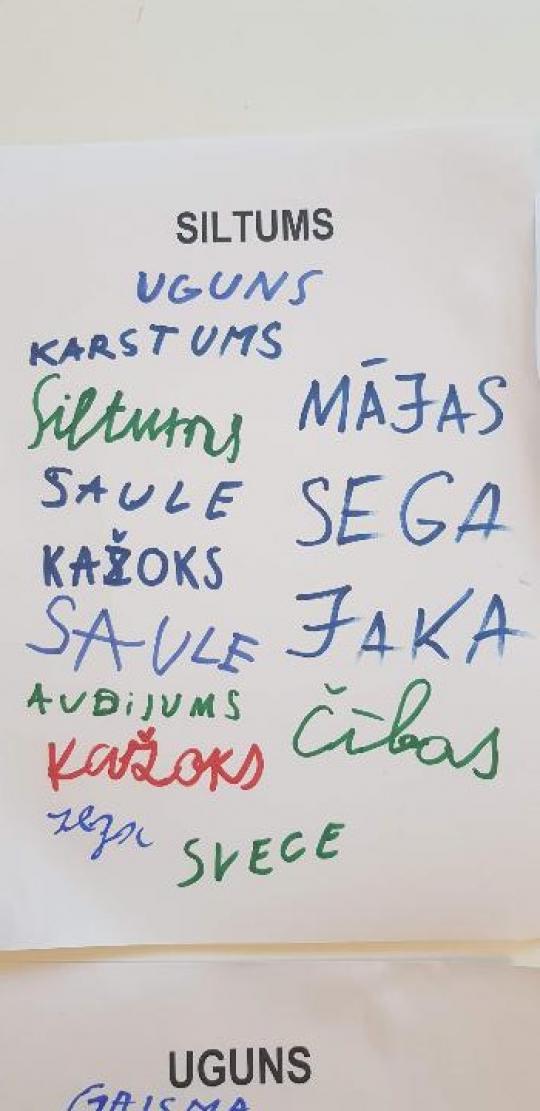 SILTUMS
UGUNS
KARSTUMS
Siltums
SAULE
KAŽOKS
SAULE
AUDIJUMS
KAŽOKS
SVECE
MĀJAS
SEGA
JAKA
Čības
UGUNS
GAISMA